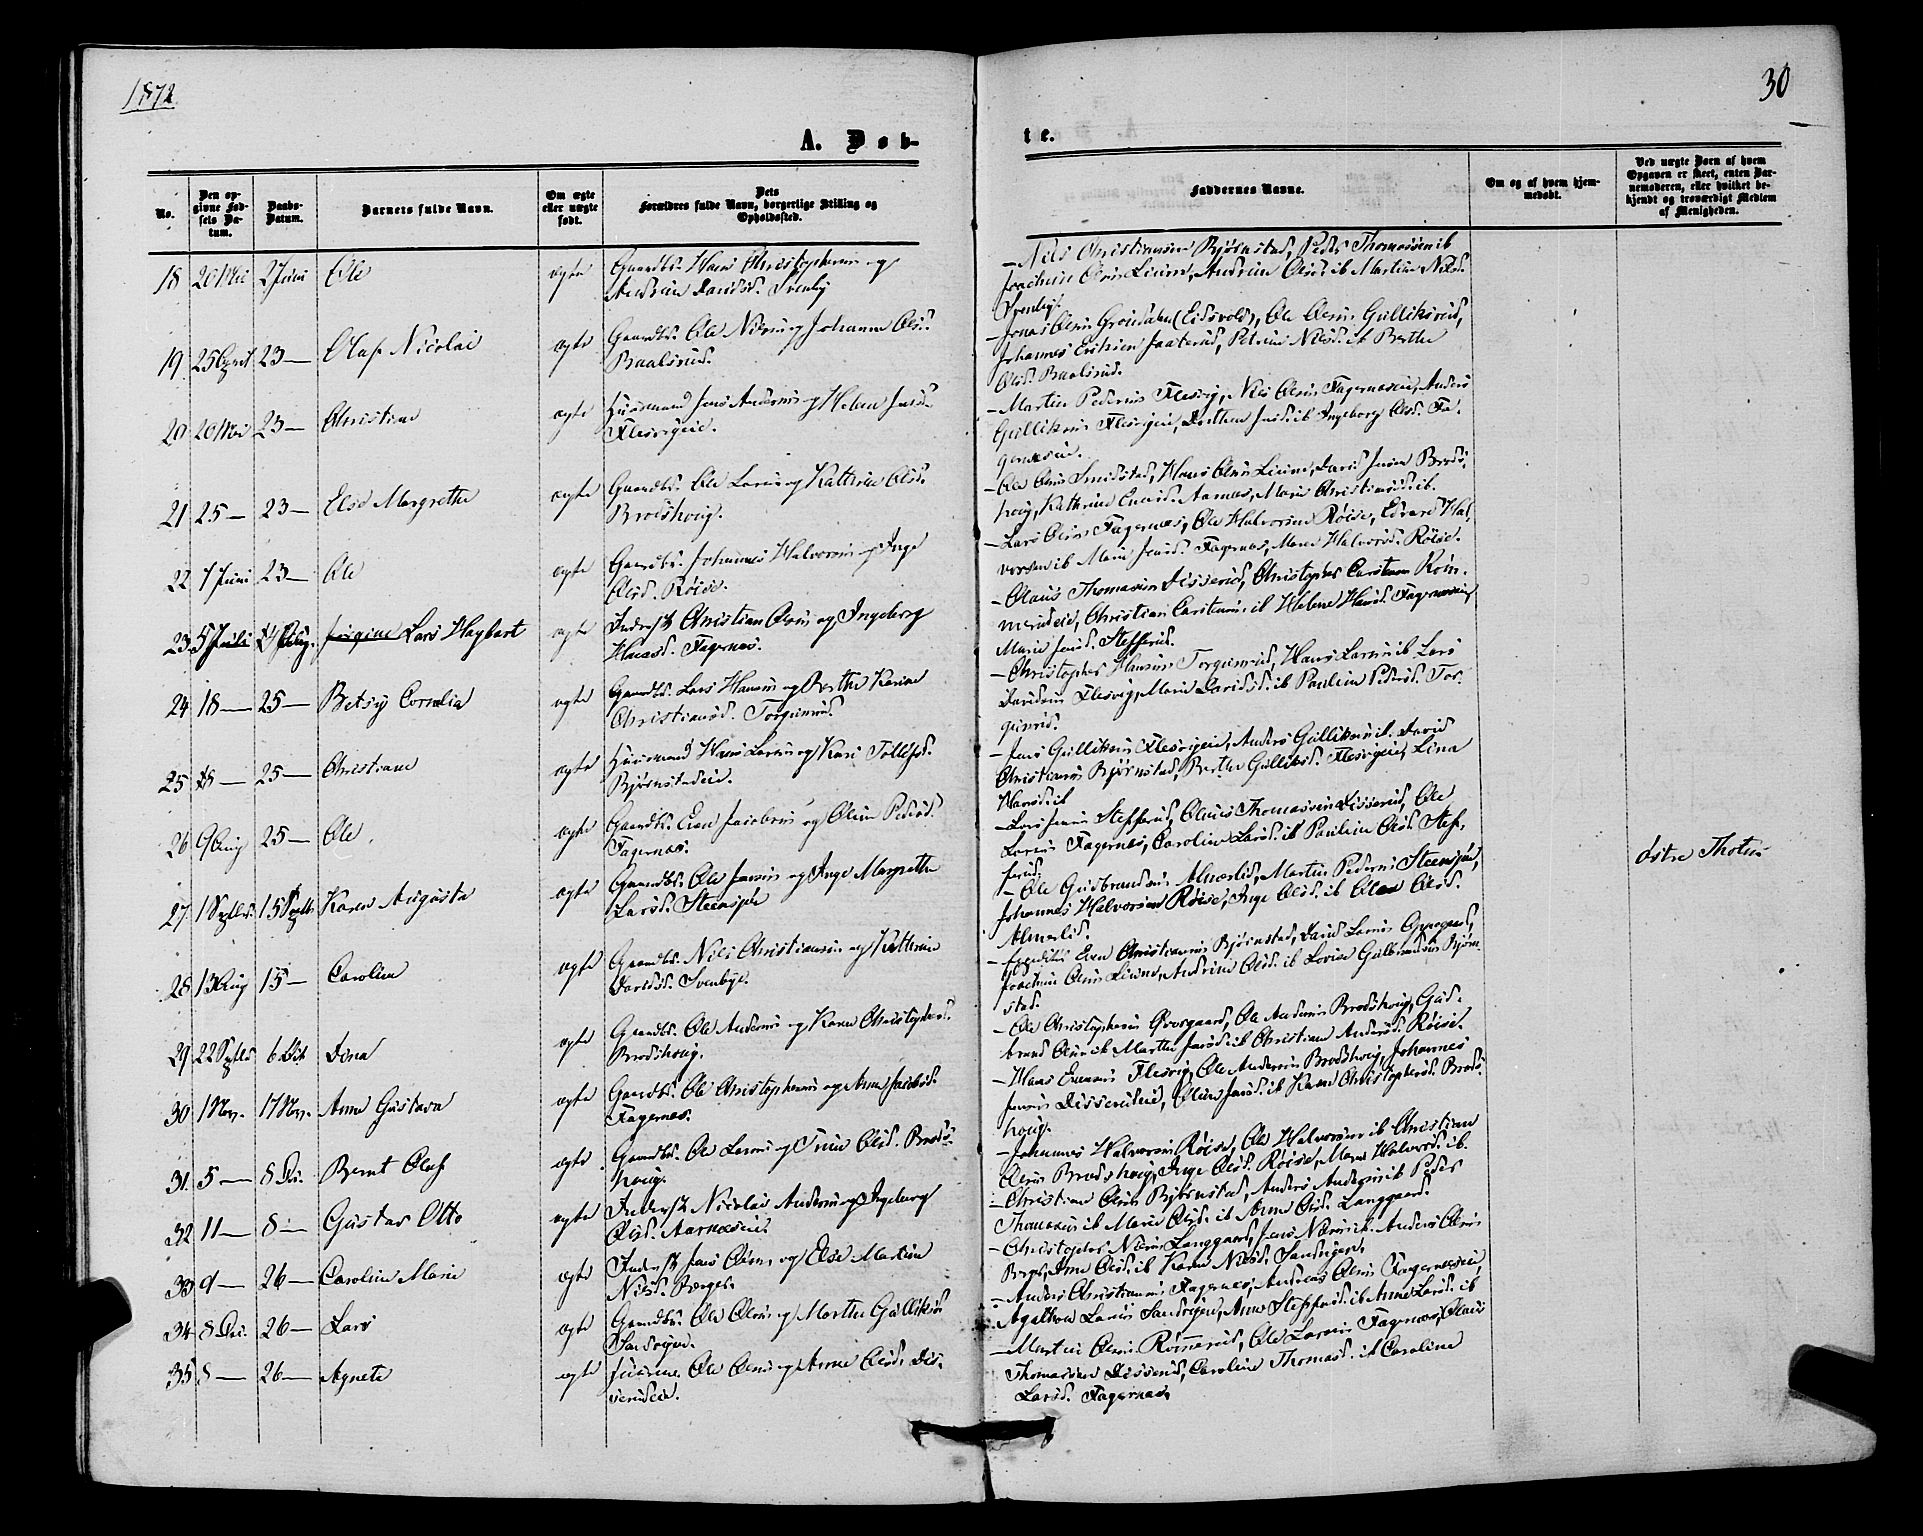 1872
30
A. Døb-
te.
No.
Den op-
givne Fød-
sels Da-
tum.
Daabs-
Datum.
Barnets fulde Navn.
Om ægte
eller uægte
født.
Dets
Forældres fulde Navn, borgerlige Stilling og
Opholdssted.
Faddernes Navne.
Om og af hvem hjem-
medøbt.
Ved uægte Børn af hvem
Opgaven er skeet, enten Bar-
nemoderen, eller hvilket be-
kjendt og troværdigt Medlem
af Menigheden.
18 20 Mai 2 Juni Ole ægte Gaardbr. Hans Christophersen og
Andrine Davidsd. Svenby
- Nils Christiansen Bjørnstad, Peder Thomassen ib
Joachim Olsen Liune, Andrine Olsd. ib Martine Nilsd.
Svenby.
19 25 April 23 — Olaf Nicolai ægte Gaardbr. Ole Nilsen og Johanne Olsd.
Baalsrud.
- Jonas Olsen (Eidsvold), Ole Olsen Gulliksrud,
Johannes Eriksen Petrine Nilsd. ib Berthe
Olsd. Baalsrud.
20 20 Mai 23 — Christine ægte Huusmand Jens Andersen og Helene Jensd.
Flesvigeie.
- Martin Pedersen Flesvig, Nils Olsen Fagernæseie, Anders
Gulliksen Flesvigeie, Dorthea Jensd. ib Ingeborg Olsd. Fa-
gernæseie.
21 25 — 23 — Else Margrethe ægte Gaardbr. Ole Larsen og Kathrine Olsd.
Brodshoug.
- Ole Olsen Smidstad, Hans Olsen Liune, David Jensen Brods-
houg, Kathrine Enersd. Aarnæs, Marie Christiansd. ib.
22 7 Juni 23 — Ole ægte Gaardbr. Johannes Halvorsen og Inge
Olsd. Røise.
- Lars Olsen Fagernæs, Ole Halvorsen Røise, Edvard Hal-
vorsen ib Marie Jensd. Fagernæs, Maren Halvorsd. Røise.
23 5 Juli Aug. Lars Hagbart ægte Inderst Christian Olsen og Ingeborg
Hansd. Fagernæs.
- Olaus Thomassen Disserud, Christopher Carstensen Røm-
merudeie, Christian Carstensen ib Helene Hansd. Fagernæseie,
Marie Jensd. Stefferud.
24 18 — 25 — Betsy Cornelia ægte Gaardbr. Lars Hansen og Berthe Karine
Christiansd. Torgunrud.
- Christopher Hansen Torgunrud, Hans Larsen ib Lars
Davidsen Flesvig, Marie Davidsd. ib Pauline Pedersd. Tor-
gunrud.
25 18 — 25 — Christiane ægte Huusmand Hans Larsen og Kari Tollefsd.
Bjørnstadeie.
- Jens Gulliksen Flesvigeie, Anders Gulliksen ib. David
Christiansen Bjørnstad, Berthe Gulliksd. Flesvigeie, Lina
Hansd. ib
26 9 Aug 25 — Ole ægte Gaardbr. Even Jacobsen og Oline Pedersd.
Fagernæs.
- Lars Jensen Stefferud, Olaus Thomassen Disserud, Ole
Larsen Fagernæs, Caroline Larsd. ib Pauline Olsd. Stef-
ferud.
Østre Thoten
27 1 Septbr. 15 Septbr. Karen Augusta ægte Gaardbr. Ole Jensen og Inge Margrethe
Larsd. Steensjøe
- Ole Gudbrandsen Almerlid, Martin Pedersen Steensjøe,
Johannes Halvorsen Røise, Inge Olsd. ib Olea Olsd.
Almerlid.
28 13 Aug 15 — Caroline ægte Gaardbr. Nils Christiansen og Kathrine
Davidsd. Svenbye.
- Even Christiansen Bjørnstad, David Larsen
Joachim Olsen Liune, Andrine Olsd. ib Lovise Gulbrandsen Bjørn-
stad.
29 22 Septbr 6 Oct Dina ægte Gaardbr. Ole Andersen og Karen Christophersd.
Brodshoug.
- Ole Christophersen Qvorgaard, Ole Andersen Brodshoug, Gud-
brand Olsen ib Marthe Jensd. ib Christiane Andersd. Røise.
30 1 Nov. 17 Nov. Anne Gustava ægte Gaardbr. Ole Christophersen og Anne Jacobsd.
Fagernæs.
- Hans Evensen Flesvig, Ole Andersen Brodshoug, Johannes
Jensen Disserudeie, Oline Jensd. ib Karen Christophersd. Brods-
houg.
31 5 — 8 De. Bernt Oluf ægte Gaardbr. Ole Larsen og Trine Olsd. Brods-
houg.
- Johannes Halvorsen Røise, Ole Halvorsen ib Christian
Olsen Brodshoug, Inge Olsd. Røise, Maren Halvorsd. ib.
32 11 — 8 — Gustav Otto ægte Inderst Nicolai Andersen og Ingeborg
Olsd. Aarnæseie.
- Christian Olsen Bjørnstad, Anders Andersen ib Peder
Thomassen ib Marie Olsd. ib Anne Olsd. Langgaard.
33 9 — 26 — Caroline Marie ægte Inderst Jens Olsen og Else Martine
Nilsd. Berger.
- Christopher Nilsen Langgaard, Jens Nilsen ib Anders Olsen
Berger, Anne Olsd. ib Karen Nilsd. Sandvigen.
34 8 Dec. 26 — Lars ægte Gaardbr. Ole Olsen og Marthe Gulliksd.
Sandvigen.
- Anders Christiansen Fagernæs, Andreas Olsen Fagernæseie,
Agathon Larsen Sandvigen, Anne Steffensd. ib Anne Larsd. ib
35 8 — 26 — Agnete ægte Ole Olsen og Anne Olsd. Dis-
serudeie.
- Martin Olsen Rømmerud, Ole Larsen Fagernæs, Olaus
Thomassen Disserud, Caroline Thomasd. ib Caroline
Larsd. Fagernæs.